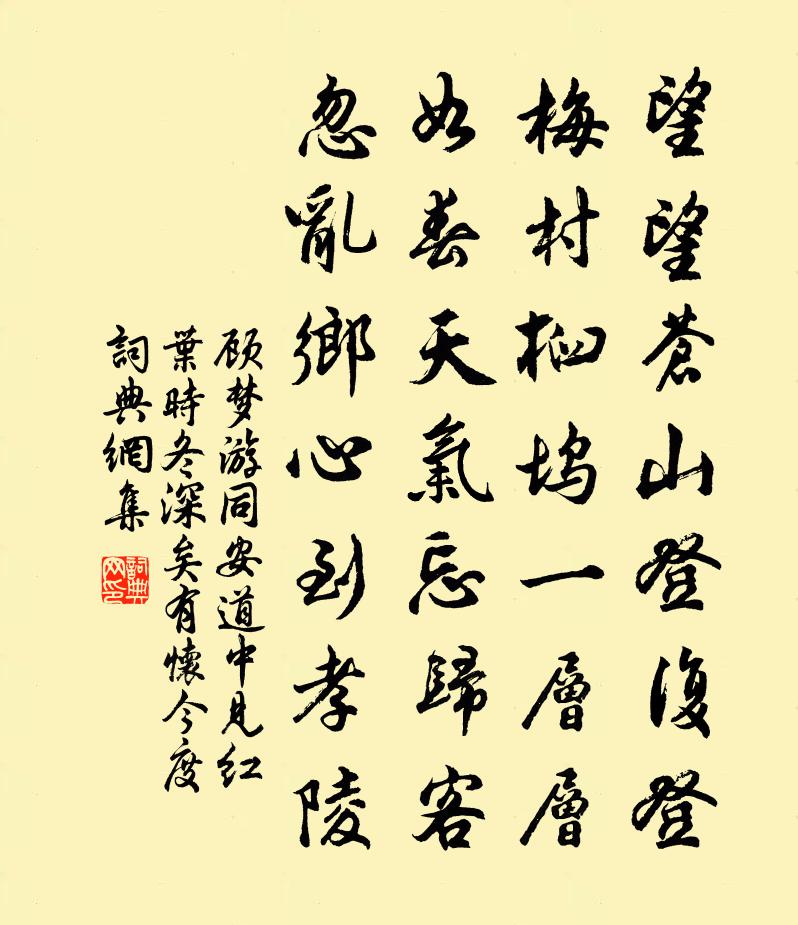 望望蒼山登復登
梅村桕塢一層層
如春天氣忘歸客
忽亂鄉心到孝陵
顾梦游同安道中見红
葉時冬深矣有懷今度
詞典網集
詞典网印